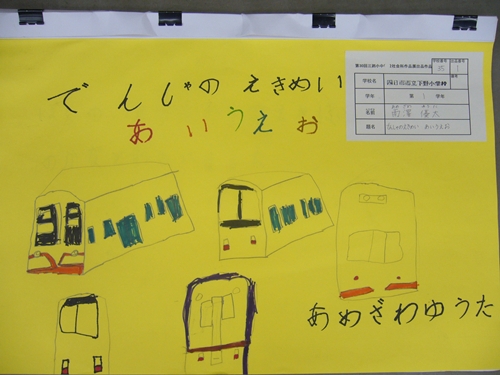 でんしゃの えきめい
あいうえお
学校名 四日市市立下野小学校
学年 第 1 学年
名前
題名 でんしゃのえきめい あいうえお
あめざわゆうた